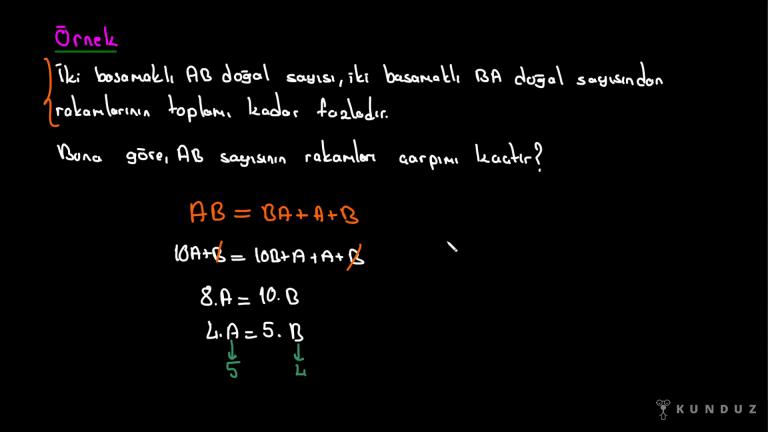 Örnek
İki basamaklı AB doğal sayısı, iki basamaklı BA doğal sayısından
rakamlarının toplamı kadar fazladır.
Buna göre, AB sayısının rakamları çarpımı kaçtır?
AB = BA+A+B
10A+B = 10B+A+A+B
8.A = 10.B
4.A = 5.B
5 4
KUNDUZ